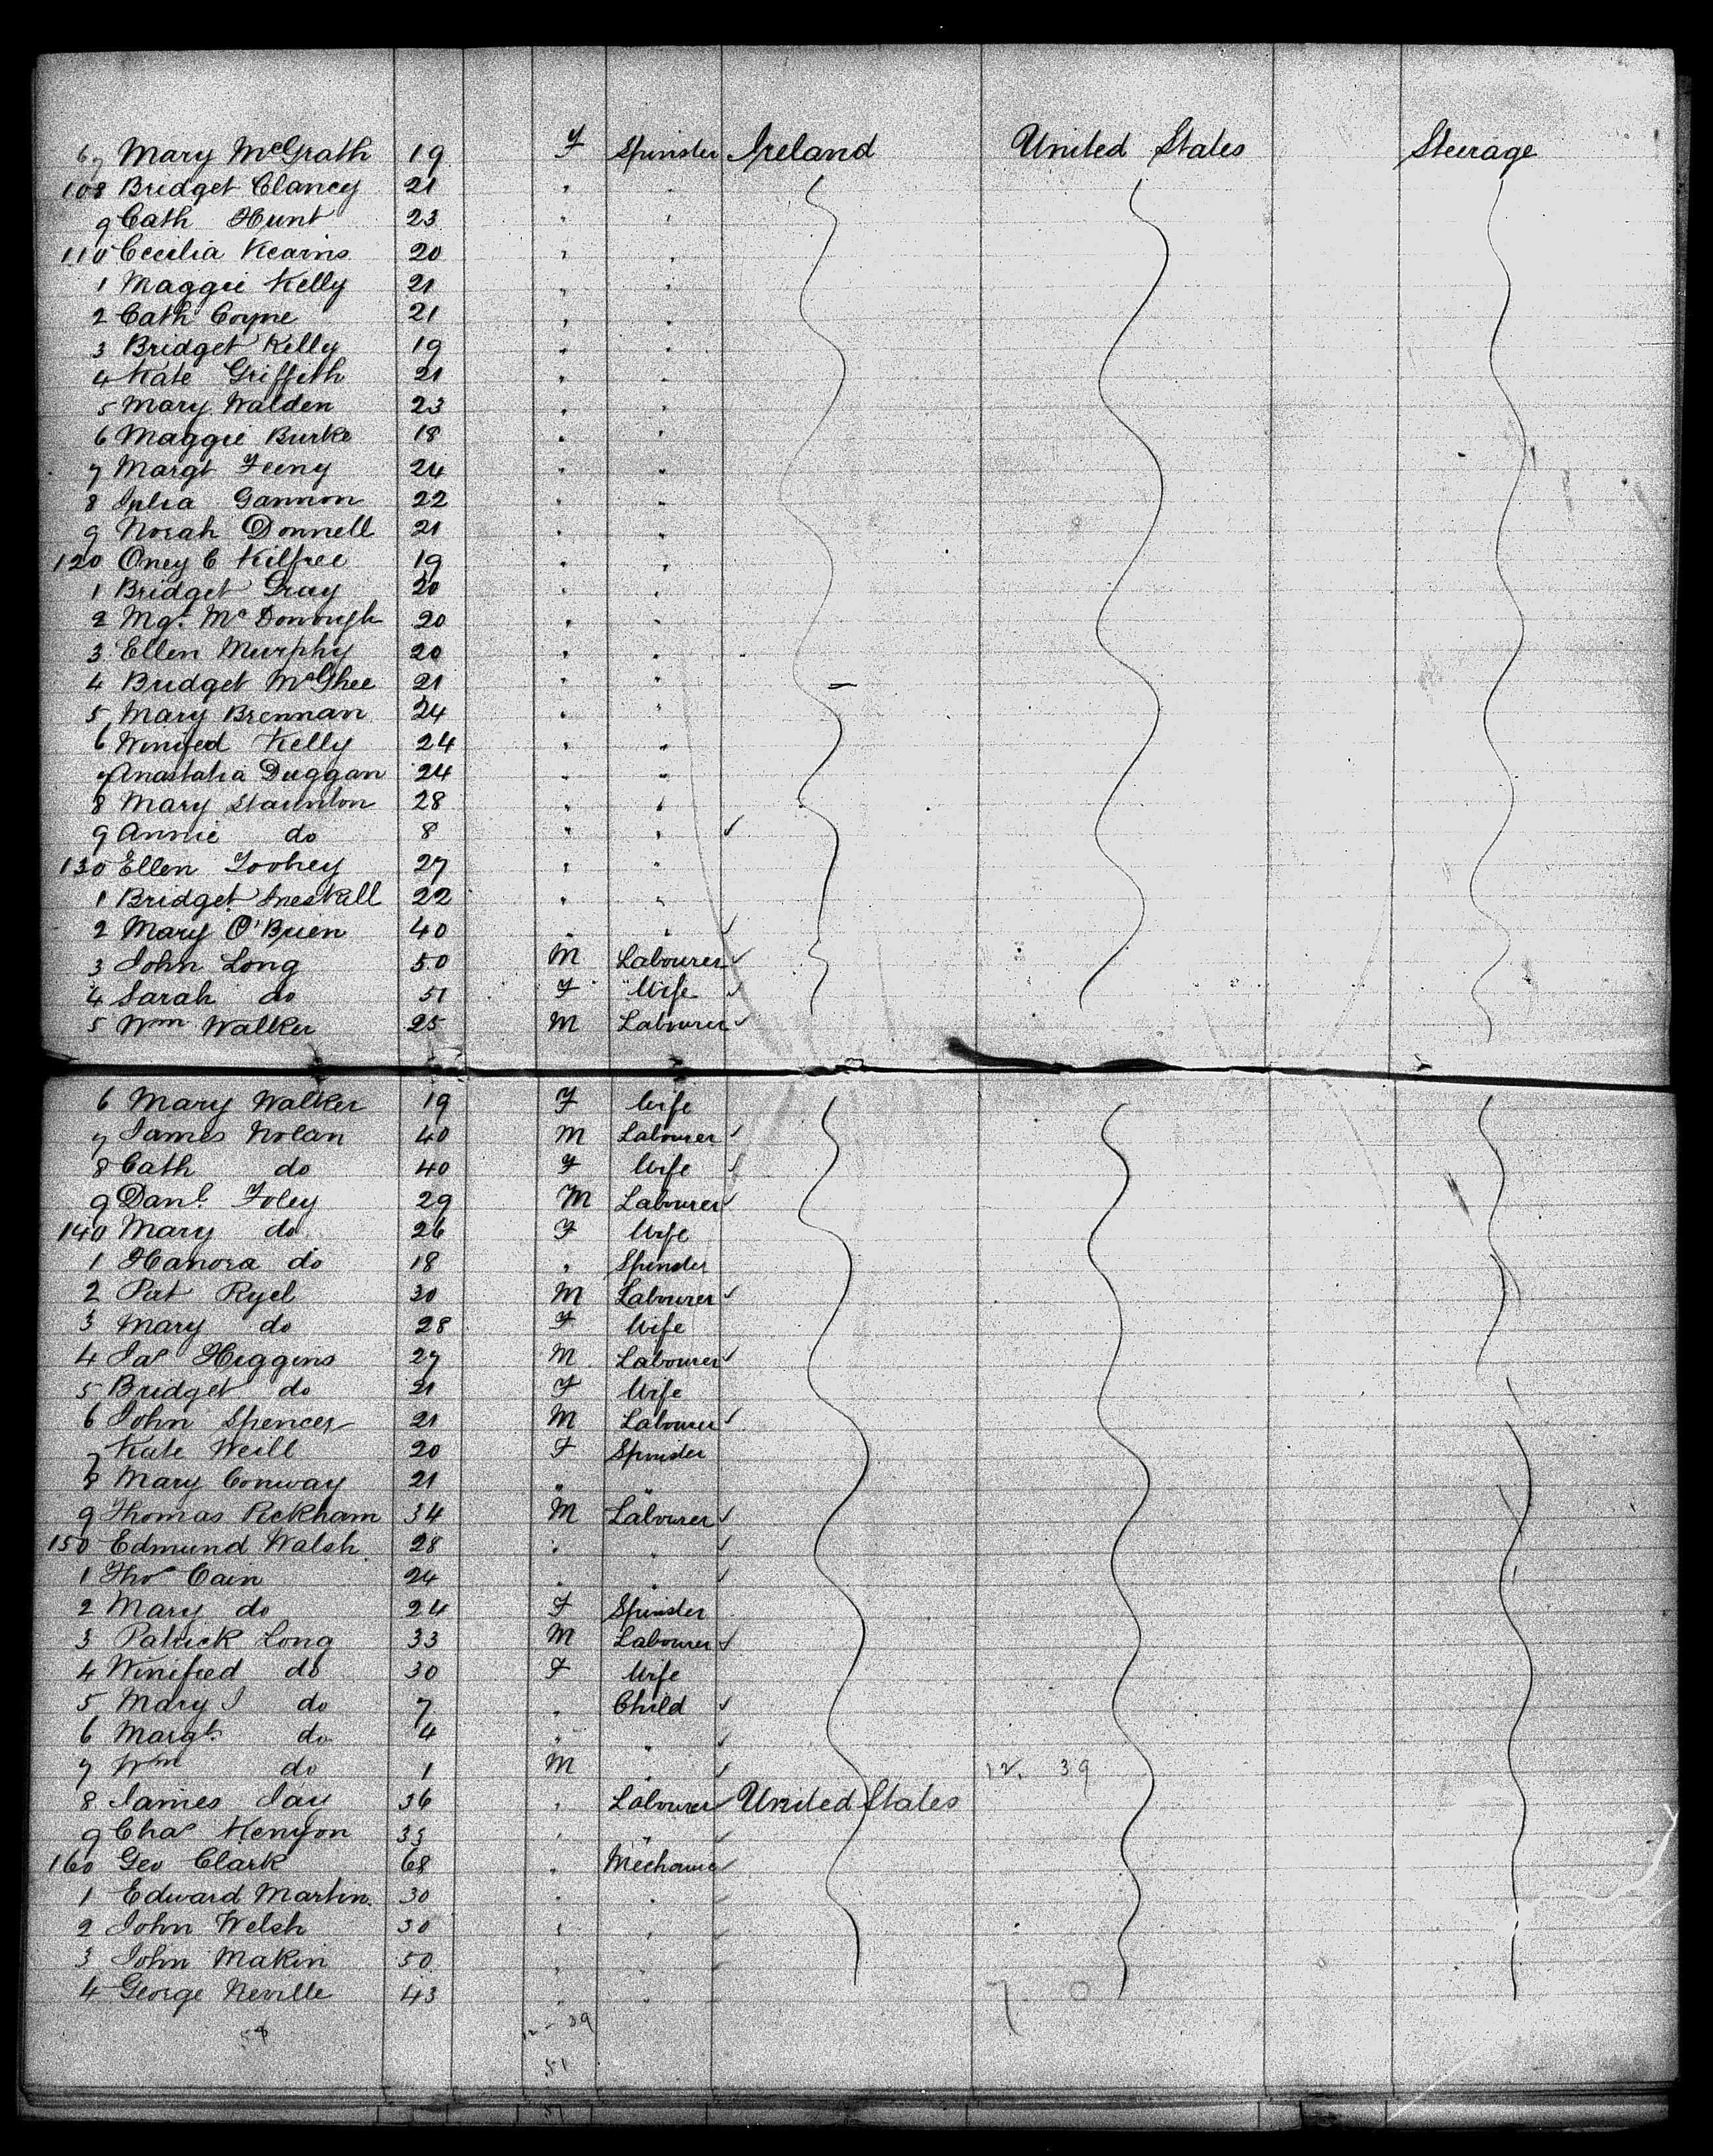 67 Mary McGrath 19 F Spinster Ireland United States Steerage
108 Bridget Clancy 21 " "
9 Cath Hunt 23 " "
110 Cecilia Kearns 20 " "
1 Maggie Kelly 21 " "
2 Cath Coyne 21 " "
3 Bridget Kelly 19 " "
4 Kate Griffith 21 " "
5 Mary Walden 23 " "
6 Maggie Burke 18 " "
7 Margt Feeny 24 " "
8 Julia Gannon 22 " "
9 Norah Donnell 21 " "
120 Oney C Kilfree 19 " "
1 Bridget Gray 20 " "
2 Mgt McDonough 20 " "
3 Ellen Murphy 20 " "
4 Bridget McGhee 21 " "
5 Mary Brennan 24 " "
6 Winifed Kelly 24 " "
7 Anastatia Duggan 24 " "
8 Mary Staunton 28 " "
9 Annie do 8 " "
130 Ellen Toohey 27 " "
1 Bridget 22 " "
2 Mary O'Brien 40 " "
3 John Long 50 M Labourer
4 Sarah do 51 F Wife
5 Wm Walker 25 M Labourer
6 Mary Walker 19 F Wife
7 James Nolan 40 M Labourer
8 Cath do 40 F Wife
9 Danl. Foley 29 M Labourer
140 Mary do 26 F Wife
1 Hanora do 18 " Spinster
2 Pat Ryel 30 M Labourer
3 Mary do 28 F Wife
4 Jas Higgins 27 M Labourer
5 Bridget do 21 F Wife
6 John Spencer 21 M Labourer
7 Kate Weill 20 F Spinster
8 Mary Conway 21 " "
9 Thomas Peckham 34 M Labourer
150 Edmund Walsh 28 " "
1 Thos Cain 24 " "
2 Mary do 24 F Spinster
3 Patrick Long 33 M Labourer
4 Winifred do 30 F Wife
5 Mary J do 7 " Child
6 Margt do 4 " "
7 Wm do 1 M " 12. 39
8 James 36 " Labourer United States
9 Chas Kenyon 35 " "
160 Geo Clark 68 " Mechanic
1 Edward Martin 30 " "
2 John Welsh 30 " "
3 John Makin 50 " "
4 George Neville 43 " " 7 0
58 12 - 39
51